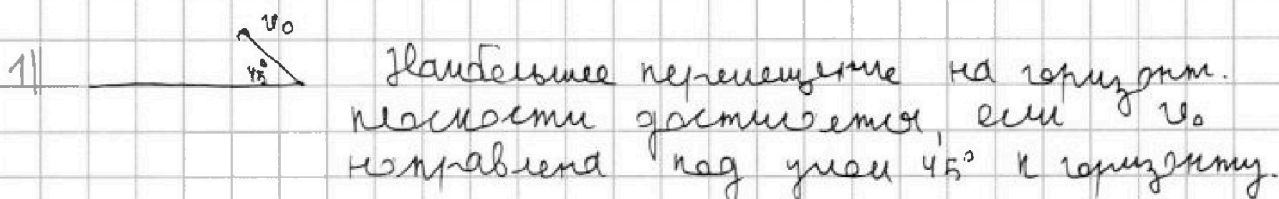 1) v₀
45°
Наибольшее перемещение на горизонт.
плоскости достигается, если v₀
направлена под углом 45° к горизонту.